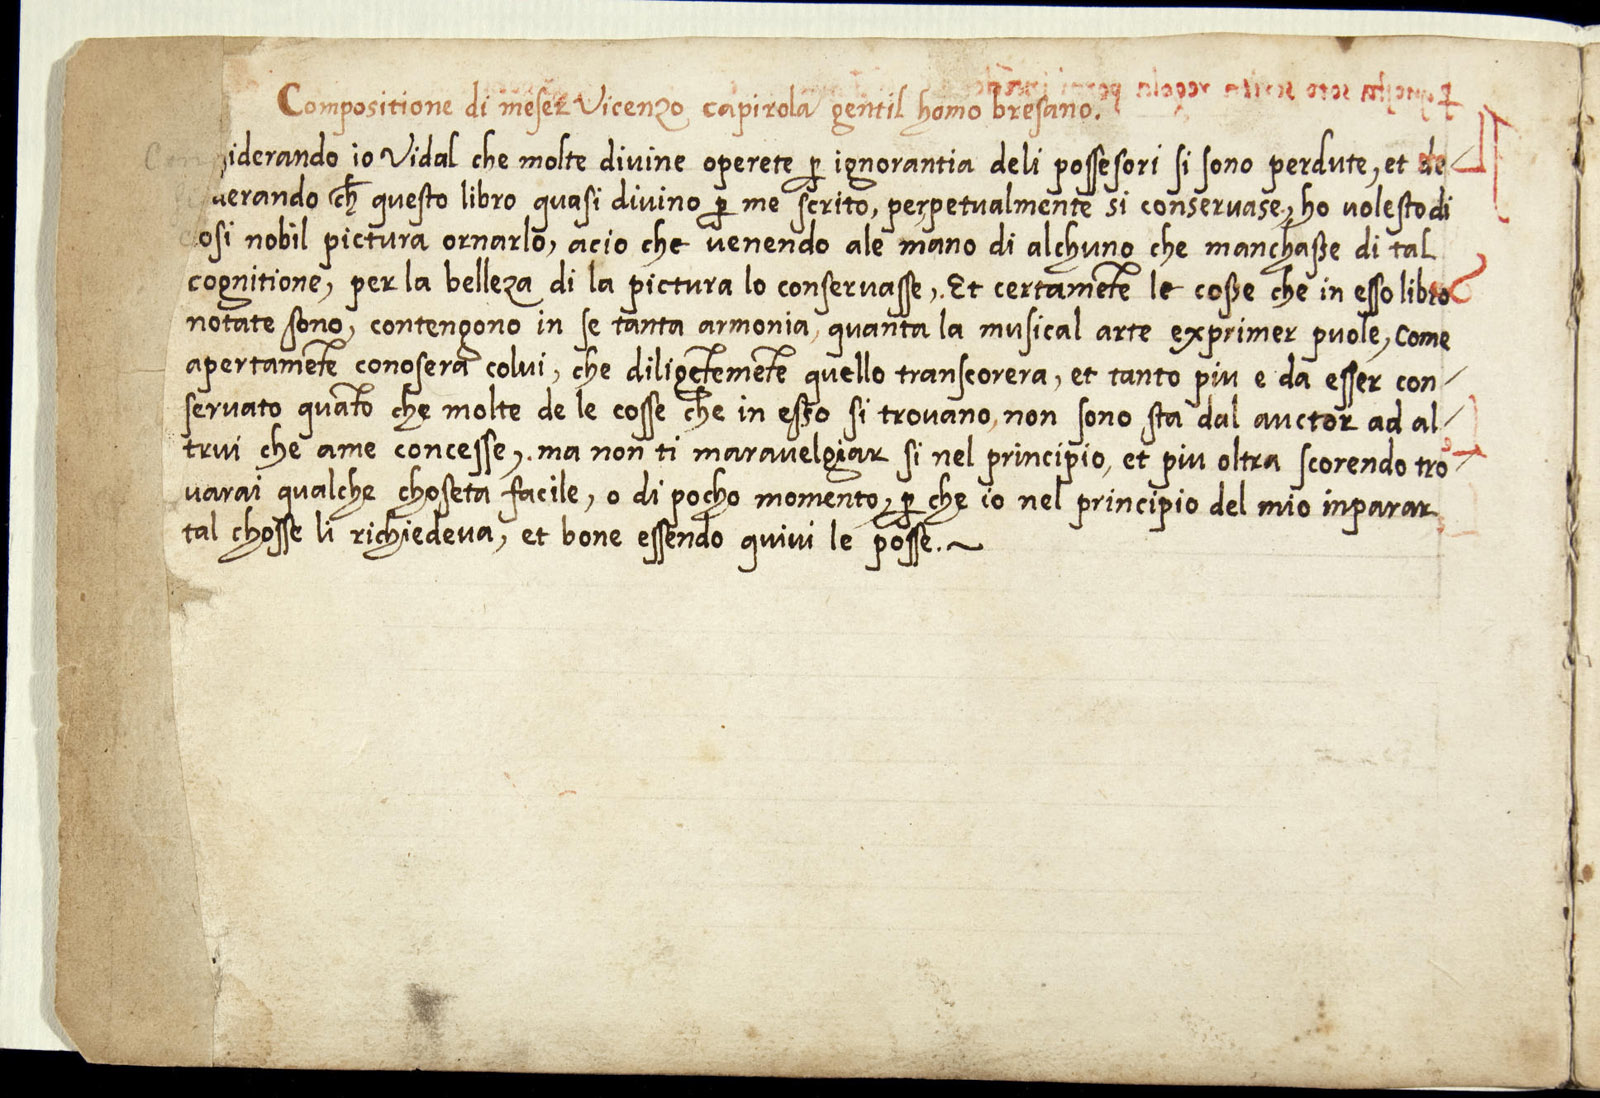 Compositione di meser Vicenzo capirola gentil homo bresano.
Considerando io Vidal che molte divine operete p ignorantia deli possesori si sono perdute, et de
siderando ch questo libro quasi divino p me scrito, perpetualmente si conservase, ho volesto di
cosi nobil pictura ornarlo, acio che venendo ale mano di alchuno che manchasse di tal
cognitione, per la belleza di la pictura lo conservasse, . Et certamēte le cosse che in esso libro
notate sono, contengono in se tanta armonia, quanta la musical arte exprimer puole, come
apertamēte conosera colui, che diligētemēte quello transcorera, et tanto piu e da esser con/
servato quāto che molte de le cosse che in esso si trovano, non sono sta dal auctor ad al/
trui che ame concesse, . ma non ti maravelgiar si nel principio, et piu oltra scorendo tro/
varai qualche choseta facile, o di pocho momento, p che io nel principio del mio inparar
tal chosse li richiedeva, et bone essendo quivi le posse. ~